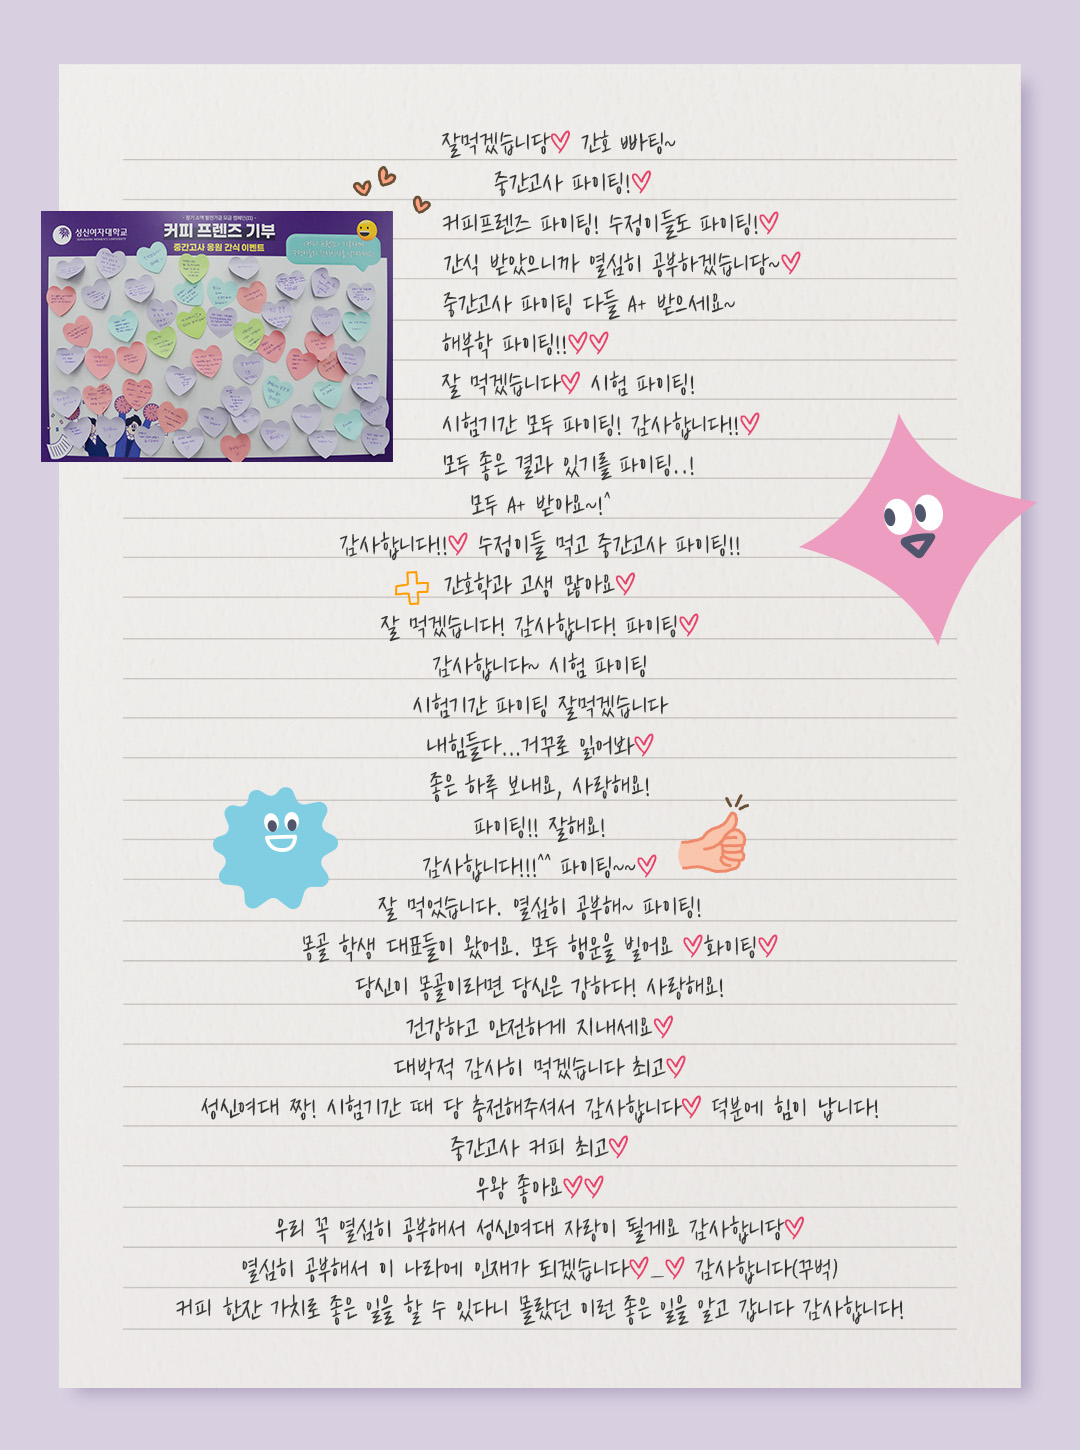 잘먹겠습니당♡ 간호 빠팅~
중간고사 파이팅!♡
커피프렌즈 파이팅! 수정이들도 파이팅!♡
간식 받았으니까 열심히 공부하겠습니당~♡
중간고사 파이팅 다들 A+ 받으세요~
해부학 파이팅!!♡♡
잘 먹겠습니다♡ 시험 파이팅!
시험기간 모두 파이팅! 감사합니다!!♡
모두 좋은 결과 있기를 파이팅..!
모두 A+ 받아요~!^
성신여자대학교
커피 프렌즈 기부
중간고사 응원 간식 이벤트
감사합니다!!♡ 수정이들 먹고 중간고사 파이팅!!
간호학과 고생 많아요♡
잘 먹겠습니다! 감사합니다! 파이팅♡
감사합니다~ 시험 파이팅
시험기간 파이팅 잘먹겠습니다
내힘들다...거꾸로 읽어봐♡
좋은 하루 보내요, 사랑해요!
파이팅!! 잘해요!
감사합니다!!!^^ 파이팅~~♡
잘 먹었습니다. 열심히 공부해~ 파이팅!
몽골 학생 대표들이 왔어요. 모두 행운을 빌어요 ♡화이팅♡
당신이 몽골이라면 당신은 강하다! 사랑해요!
건강하고 안전하게 지내세요♡
대박적 감사히 먹겠습니다 최고♡
성신여대 짱! 시험기간 때 당 충전해주셔서 감사합니다♡ 덕분에 힘이 납니다!
중간고사 커피 최고♡
우왕 좋아요♡♡
우리 꼭 열심히 공부해서 성신여대 자랑이 될게요 감사합니당♡
열심히 공부해서 이 나라에 인재가 되겠습니다♡_♡ 감사합니다(꾸벅)
커피 한잔 가치로 좋은 일을 할 수 있다니 몰랐던 이런 좋은 일을 알고 갑니다 감사합니다!